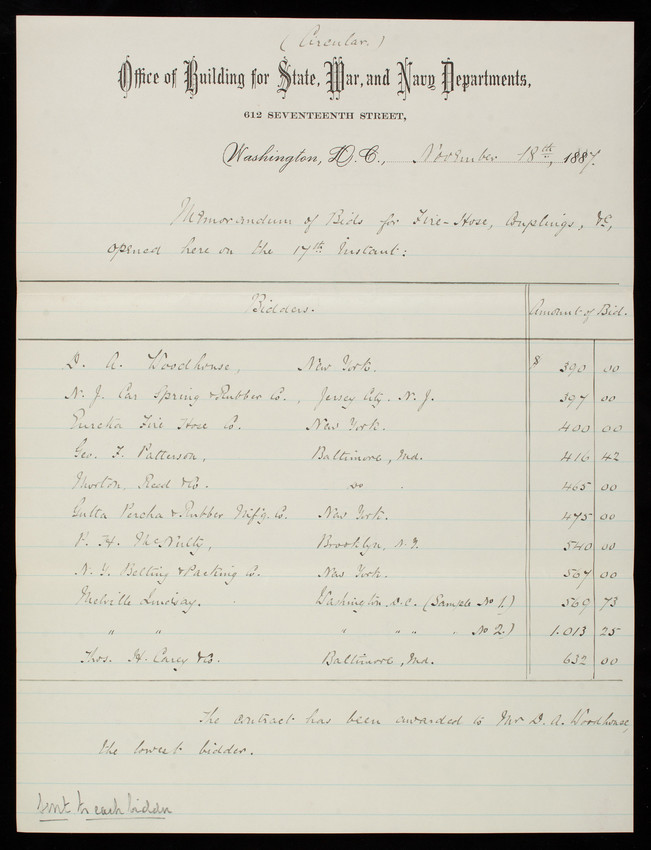 (Circular.)
Office of Building for State, War, and Navy Departments,
612 SEVENTEENTH STREET,
Washington, D. C., November 18th, 1887.
Memorandum of Bids for Fire-Hose, Couplings, &c,
opened here on the 17th Instant:
Bidders. Amount of Bid.
D. A. Woodhouse, New York. $ 390 00
N. J. Car Spring & Rubber Co., Jersey City. N. J. 397 00
Eureka Fire Hose Co. New York. 400 00
Geo. F. Patterson, Baltimore, Md. 416 42
Morton, Reed & Co. do . 465 00
Gutta Percha & Rubber M'f'g. Co. New York. 475 00
P. H. McNulty, Brooklyn, N.Y. 540 00
N. Y. Belting & Packing Co. New York. 567 00
Melville Lindsay. Washington D.C. (Sample No 1.) 569 73
" " " " " " No 2.) 1.013 25
Thos. H. Carey & Co. Baltimore, Md. 632 00
The contract has been awarded to Mr D. A. Woodhouse,
the lowest bidder.
Sent to each bidder